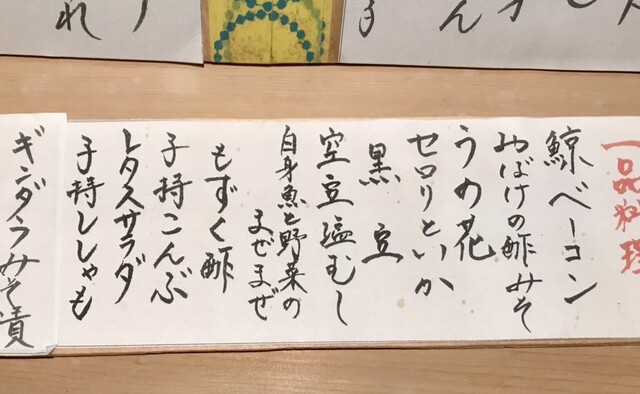 一品料理
鯨ベーコン
おばけの酢みそ
うめ花
セロリといか
黒豆
空豆塩むし
白身魚と野菜の
まぜまぜ
もずく酢
子持こんぶ
レタスサラダ
子持ししゃも
ギンダラみそ漬